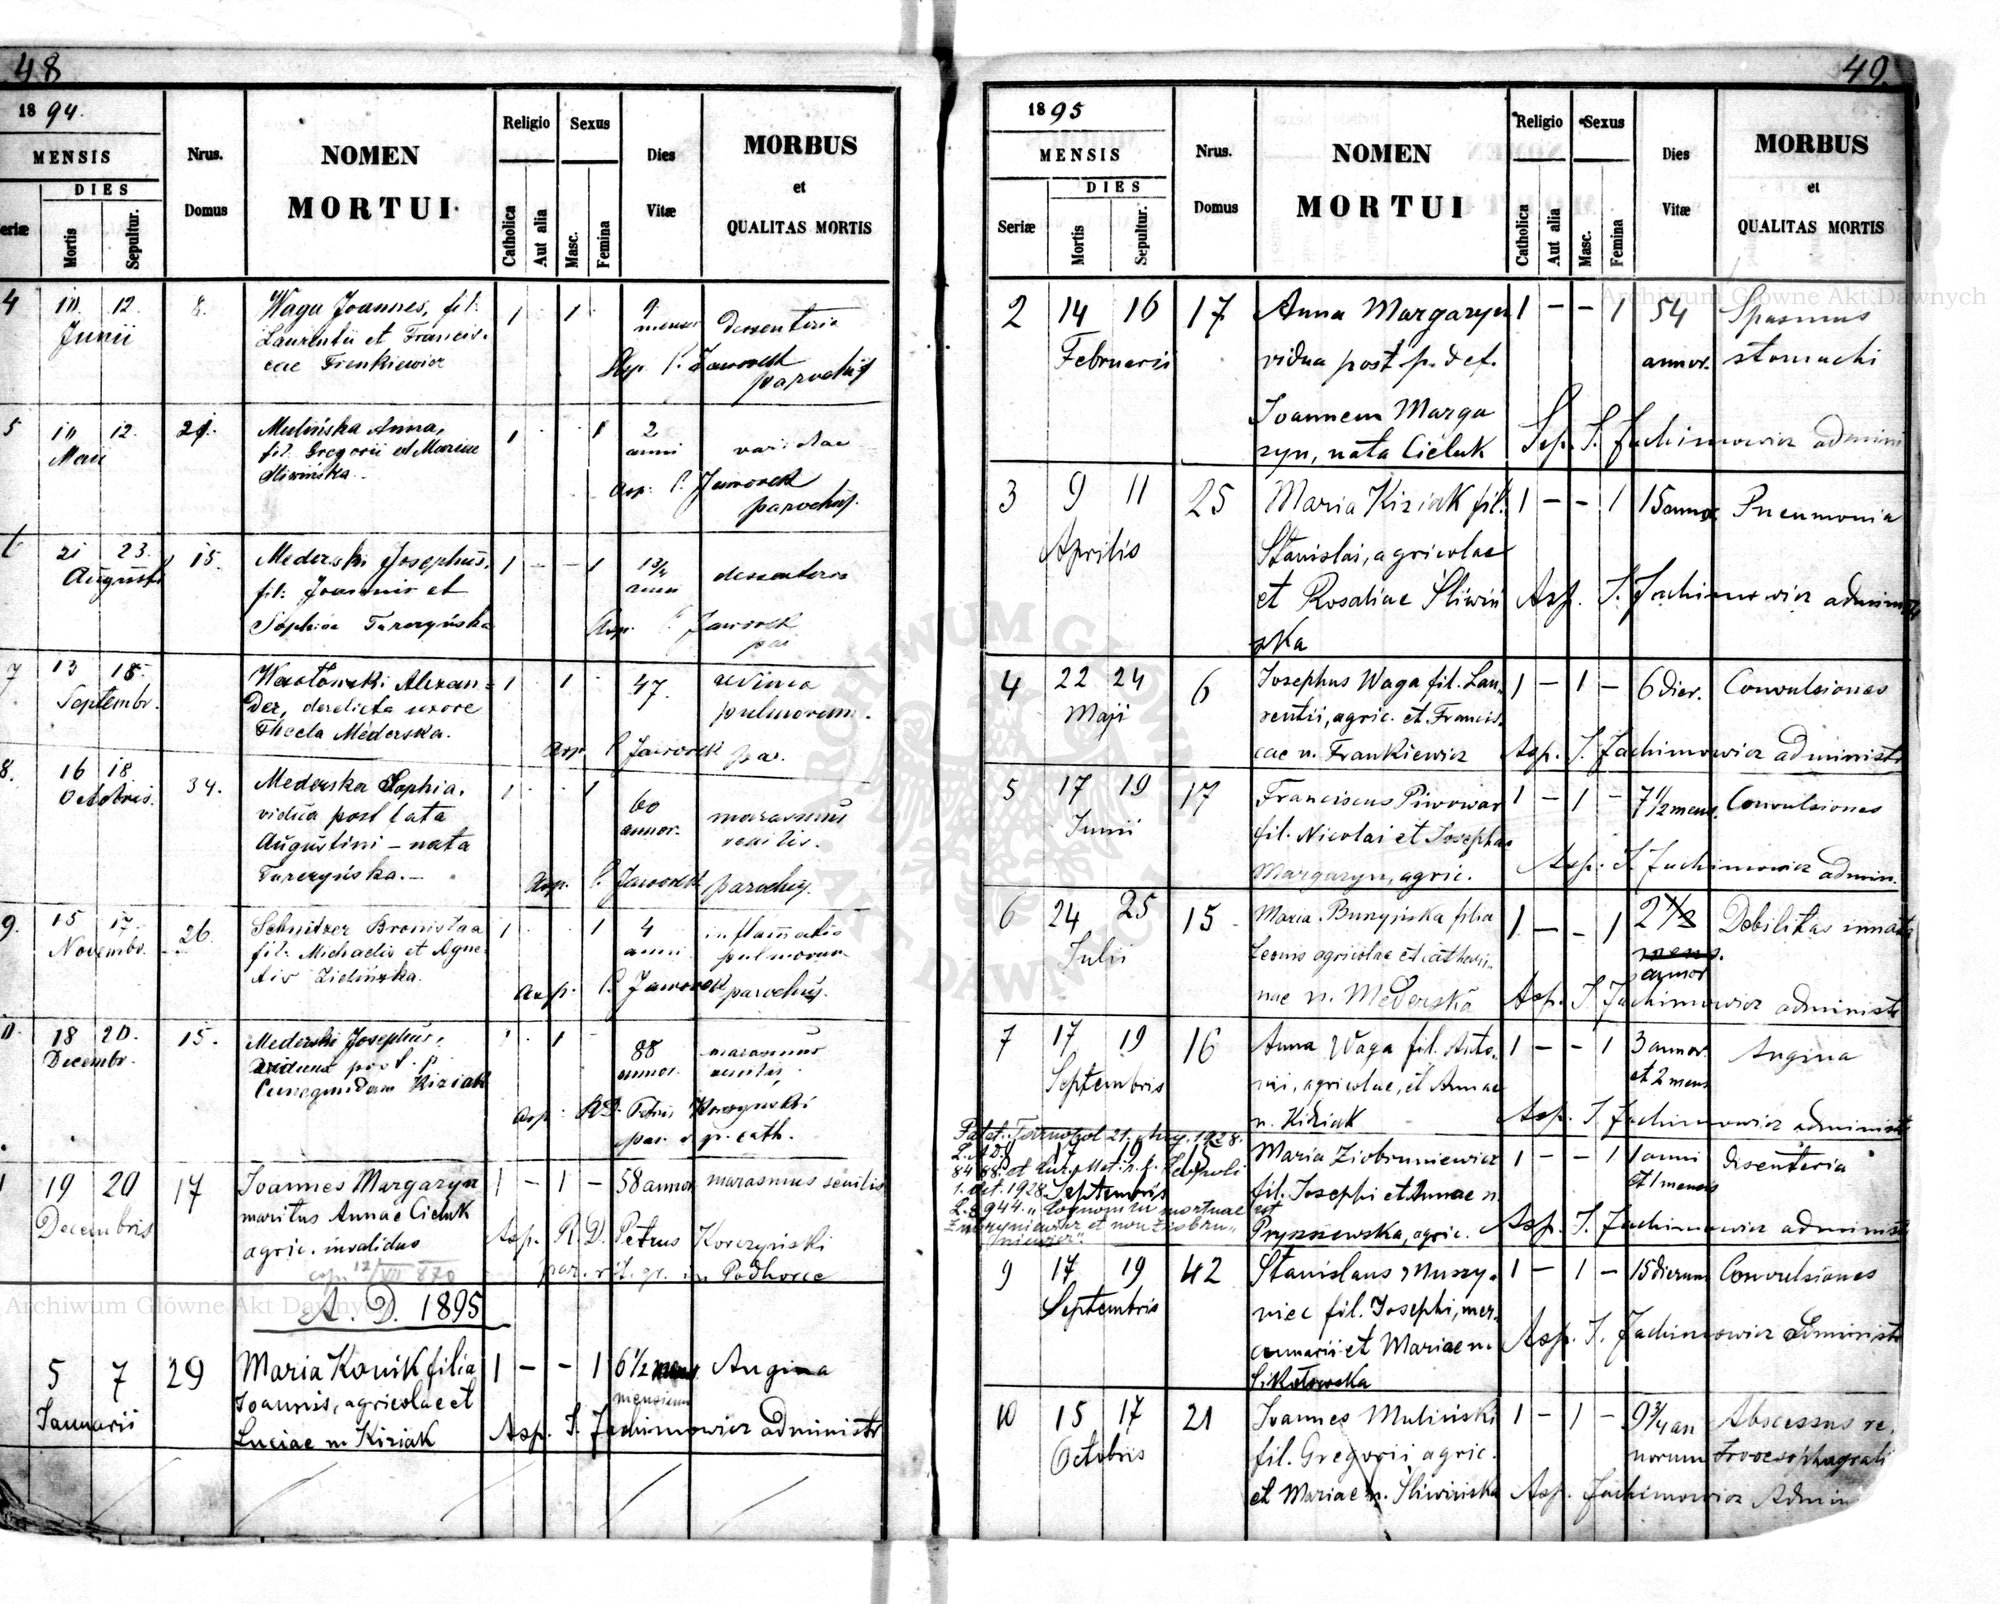 48
1894.
MENSIS
DIES
eriæ
Mortis
Sepultur.
Nrus.
Domus
NOMEN
MORTUI
Religio
Catholica
Aut alia
Sexus
Masc.
Femina
Dies
Vitæ
MORBUS
et
QUALITAS MORTIS
4 10 12. 8. Waga Joannes, fil: 1 1 9
Junii Laurentii et Francis- mens. dessenteria
cae Frenkiewicz Asp. P. Jaworek
parochus
5 10 12. 21. Mulińska Anna, 1 1 2
Maii fil: Gregorii et Mariae anni variolae
Sliwińska. Asp. P. Jaworek
parochus.
21 23. 15. Mederski Josephus, 1 - - 1
Augusti fil: Joannis et dessenteria
Sophiae Tureczyńska Asp. P. Jaworek
par
7 13 15. Alexan- 1 1 47.
Septembr. der, derelicta uxore pulmorum.
Thecla Mederska. Asp. P. Jaworek par.
8. 16 18 34. Mederska Sophia, 1 1 60
Octobris. vidua post lata annor. marasmus
Augustini - nata senilis.
Tureczyńska.- Asp. P. Jaworek parochus.
9. 15 17 26. Schnitzer Bronisława 1 1 4 inflamatio
Novembr. fil: Michaelis et Agne- anni pulmorum
tis Zielińska. Asp. P. Jaworek parochus.
18 20. 15. Mederski Josephus, 1 1 - 88 marasmus
Decembr. viduus post p. annor. senilis
Cunegundam Kiziak
Asp. R.D. Petrus Korczynski
par. r. gr. cath.
19 20 17 Joannes Margazyn 1 - 1 - 58 annor marasmus senilis
Decembris maritus Annae Cieluk
agric. invalidus Asp. R. D. Petrus Korczyński
cop. 12/VII 870 par. rit. gr. in Podhorce
A. D. 1895
5 7 29 Maria Konik filia 1 - - 1 6 1/2 Angina
Januarii Joannis, agricolae et mensium
Luciae n. Kiziak Asp. J. Jachimowicz administr
49.
1895
MENSIS
DIES
Seriæ
Mortis
Sepultur.
Nrus.
Domus
NOMEN
MORTUI
Religio
Catholica
Aut alia
Sexus
Masc.
Femina
Dies
Vitæ
MORBUS
et
QUALITAS MORTIS
2 14 16 17 Anna Margazyn 1 - - 1 54 Spasmus
Februarii vidua post p. def. annor. stomachi
Joannem Marga
zyn, nata Cieluk Sep. J. Jachimowicz admini
3 9 11 25 Maria Kiziak fil. 1 - - 1 15 annor. Pneumonia
Aprilis Stanislai, agricolae
et Rosaliae Śliwiń Asp. J. Jachimowicz administr
ska
4 22 24 6 Josephus Waga fil. Lau- 1 - 1 - 6 dier. Convulsiones
Maji rentii, agric. et Francis-
cae n. Frankiewicz Asp. J. Jachimowicz administr
5 17 19 17 Franciscus Piwowar 1 - 1 - 7 1/2 mens. Convulsiones
Junii fil. Nicolai et Josephae
Margazyn, agric. Asp. J. Jachimowicz admin.
6 24 25 15 Maria Buczyńska filia 1 - - 1 2 1/2 Debilitas innata
Julii Leonis agricolae et Cathari- mens.
annor
nae n. Mederska Asp. J. Jachimowicz administr
7 17 19 16 Anna Waga fil. Anto- 1 - - 1 3 annor. Angina
Septembris nii, agricolae, et Annae et 2 mens
n. Kiziak Asp. J. Jachimowicz administr
Patet. Tarnopol 21. Aug. 1928.
8 17 19 15 Maria Ziobruniewicz 1 - - 1 1 anni Disenteria
et 1 mensis
1. Oct. 1928 Septembris fil. Josephi et Annae n.
L. 8944. "Cognomen mortuae est
Pryszzewska, agric. Asp. J. Jachimowicz administr
et non Ziobru-
niewicz"
9 17 19 42 Stanislaus Muszy- 1 - 1 - 15 dierum Convulsiones
Septembris niec fil. Josephi, mer-
cenarii et Mariae n. Asp. J. Jachimowicz administr
Sikotowska
10 15 17 21 Joannes Muliński 1 - 1 - 9 3/4 an Abscessus re-
Octobris fil. Gregorii agric. norum troesophageali
et Mariae n. Śliwińska Asp. Jachimowicz Admin
Archiwum Główne Akt Dawnych
Archiwum Główne Akt Dawnych
ARCHIWUM GŁÓWNE AKT DAWNYCH